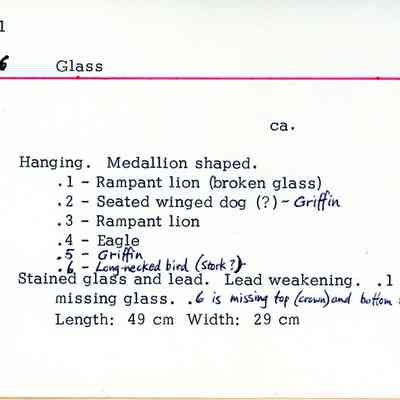 1
6 Glass
ca.
Hanging. Medallion shaped.
.1 - Rampant lion (broken glass)
.2 - Seated winged dog (?) - Griffin
.3 - Rampant lion
.4 - Eagle
.5 - Griffin
.6 - Long-necked bird (stork?)
Stained glass and lead. Lead weakening. .1
missing glass. .6 is missing top (crown) and bottom
Length: 49 cm Width: 29 cm